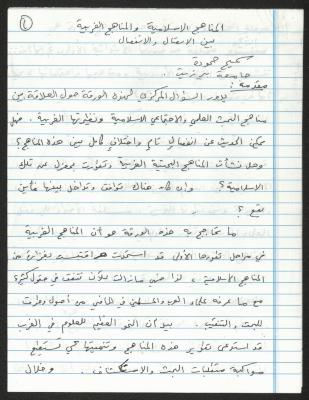 ١
المناهج الاسلامية والمناهج الغربية
بين الاتصال والانفصال
سميح حمودة
جامعة بيرزيت
مقدمة:
يدور السؤال المركزي لهذه الورقة حول العلاقة بين
مناهج البحث العلمي والاجتماعي الاسلامية ونظيرتها الغربية، فهل
يمكن الحديث عن انفصال تام واختلاف كامل بين هذه المناهج؟
وهل نشأت المناهج البحثية الغربية وتطورت بمعزل عن تلك
الاسلامية؟ وان كان هناك توافق وتداخل بينها فأين
يقع؟
ما تحاجج به هذه الورقة هو أن المناهج الغربية
في مراحل تطورها الأولى قد استمدت بغزارة من
المناهج الاسلامية، لذا فهي مازالت للآن تتفق في حقول كثيرة
مع ما عرفه علماء العرب والمسلمين في الماضي من أصول وطرق
للبحث والتنقيب. بيد أن النمو العظيم للعلوم في الغرب
قد استدعى تطوير هذه المناهج وتنميتها كي تستطيع
مواكبة متطلبات البحث والاستكشاف. وخلال